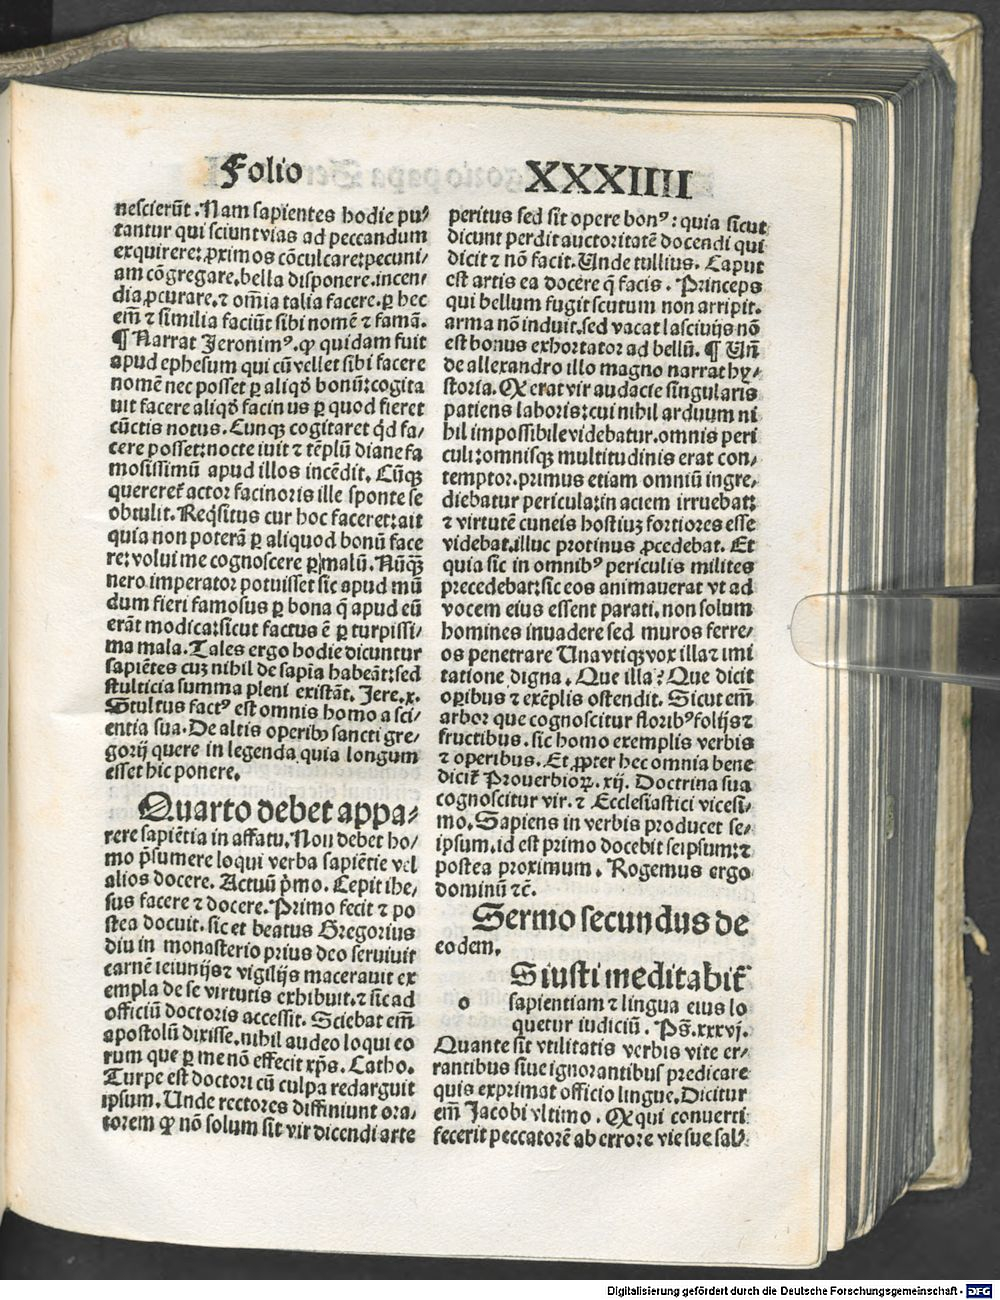 Folio XXXIIII
nescierūt. Nam sapientes hodie puꝰ
tantur qui sciunt vias ad peccandum
exquirere: ꝓximos cōculcare: pecuni/
am cōgregare. bella disponere. incen/
dia ꝓcurare. ⁊ om̄ia talia facere. ꝑ hec
em̄ ⁊ similia faciūt sibi nomē ⁊ famā.
¶ Narrat Jeronimꝰ. ꝙ quidam fuit
apud ephesum qui cū vellet sibi facere
nomē nec posset ꝑ aliqđ bonū: cogita
uit facere aliqđ facinus ꝑ quod fieret
cūctis notus. Cunqꝫ cogitaret qd̄ fa/
cere posset: nocte iuit ⁊ tēplū diane fa
mosissimū apud illos incēdit. Cūqꝫ
quereret᷑ actor facinoris ille sponte se
obtulit. Reqͥsitus cur hoc faceret: ait
quia non poterā ꝑ aliquod bonū face
re: volui me cognoscere ꝑ malū. Nūqꝫ
nero imperator potuisset sic apud mū
dum fieri famosus ꝑ bona q̄ apud eū
erāt modica: sicut factus ē ꝑ turpissi/
ma mala. Tales ergo hodie dicuntur
sapiētes cuꝫ nihil de sapīa habeāt: sed
stulticia summa pleni existāt. Jere. x.
Stultus factꝰ est omnis homo a sci/
entia sua. De altis operibꝰ sancti gre/
gorij quere in legenda quia longum
esset hic ponere.
Quarto debet appa/
rere sapiētia in affatu. Non debet ho/
mo p̄sumere loqui verba sapiētie vel
alios docere. Actuū p̄mo. Cepit ihe/
sus facere ⁊ docere. Primo fecit ⁊ po
stea docuit. sic et beatus Gregorius
diu in monasterio prius deo seruiuit
carnē ieiunijs ⁊ vigilijs macerauit ex
empla de se virtutis exhibuit. ⁊ sic ad
officiū doctoris accessit. Sciebat em̄
apostolū dixisse. nihil audeo loqui eo
rum que ꝑ me nō effecit xp̄s. Catho.
Turpe est doctori cū culpa redarguit
ipsum. Unde rectores diffiniunt ora/
torem ꝙ nō solum sit vir dicendi arte
peritus sed sit opere bonꝰ: quia sicut
dicunt perdit auctoritatē docendi qui
dicit ⁊ nō facit. Unde tullius. Caput
est artis ea docere q̄ facis. Princeps
qui bellum fugit scutum non arripit.
arma nō induit. sed vacat lasciuijs nō
est bonus exhortator ad bellū. ¶ Un̄
de allexandro illo magno narrat hy/
storia. Ꝙ erat vir audacie singularis
patiens laboris: cui nihil arduum ni
hil impossibile videbatur. omnis peri
culi: omnisqꝫ multitudinis erat con/
temptor. primus etiam omniū ingre/
diebatur pericula: in aciem irruebat:
⁊ virtutē cuneis hostiuꝫ fortiores esse
videbat. illuc protinus ꝓcedebat. Et
quia sic in omnibꝰ periculis milites
precedebat: sic eos animauerat vt ad
vocem eius essent parati. non solum
homines inuadere sed muros ferre/
os penetrare Una vtiqꝫ vox illa ⁊ imi
tatione digna. Que illa? Que dicit
oꝑibus ⁊ exēplis ostendit. Sicut em̄
arbor que cognoscitur floribꝰ folijs ⁊
fructibus. sic homo exemplis verbis
⁊ operibus. Et ꝓpter hec omnia bene
dicit᷑ Prouerbioꝝ. xij. Doctrina sua
cognoscitur vir. ⁊ Ecclesiastici vicesi/
mo. Sapiens in verbis producet se/
ipsum. id est primo docebit seipsum: ⁊
postea proximum. Rogemus ergo
dominū ⁊c̄.
Sermo secundus de
eodem.
S iusti meditabit᷑
o sapientiam ⁊ lingua eius lo
quetur iudiciū. Ps̄. xxxvj.
Quante sit vtilitatis verbis vite er/
rantibus siue ignorantibus predicare
quis exprimat officio lingue. Dicitur
em̄ Jacobi vltimo. Ꝙ qui conuerti
fecerit peccatorē ab errore vie sue salꝰ
Digitalisierung gefördert durch die Deutsche Forschungsgemeinschaft - DFG